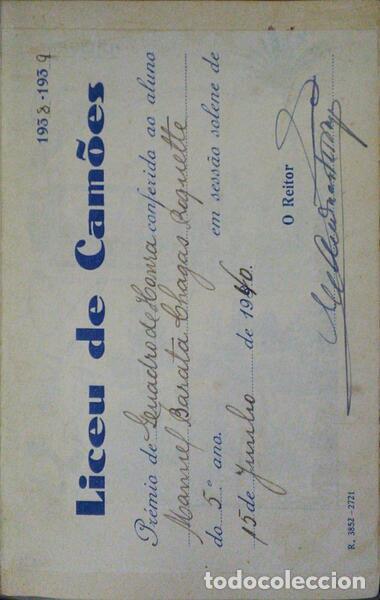 1938-1939
Liceu de Camões
Prémio de Quadro de Honra conferido ao aluno
Manuel Barata Chagas Roquette
do 5º ano. em sessão solene de
15 de Junho de 1940.
O Reitor
R. 3852-2721
todocoleccion